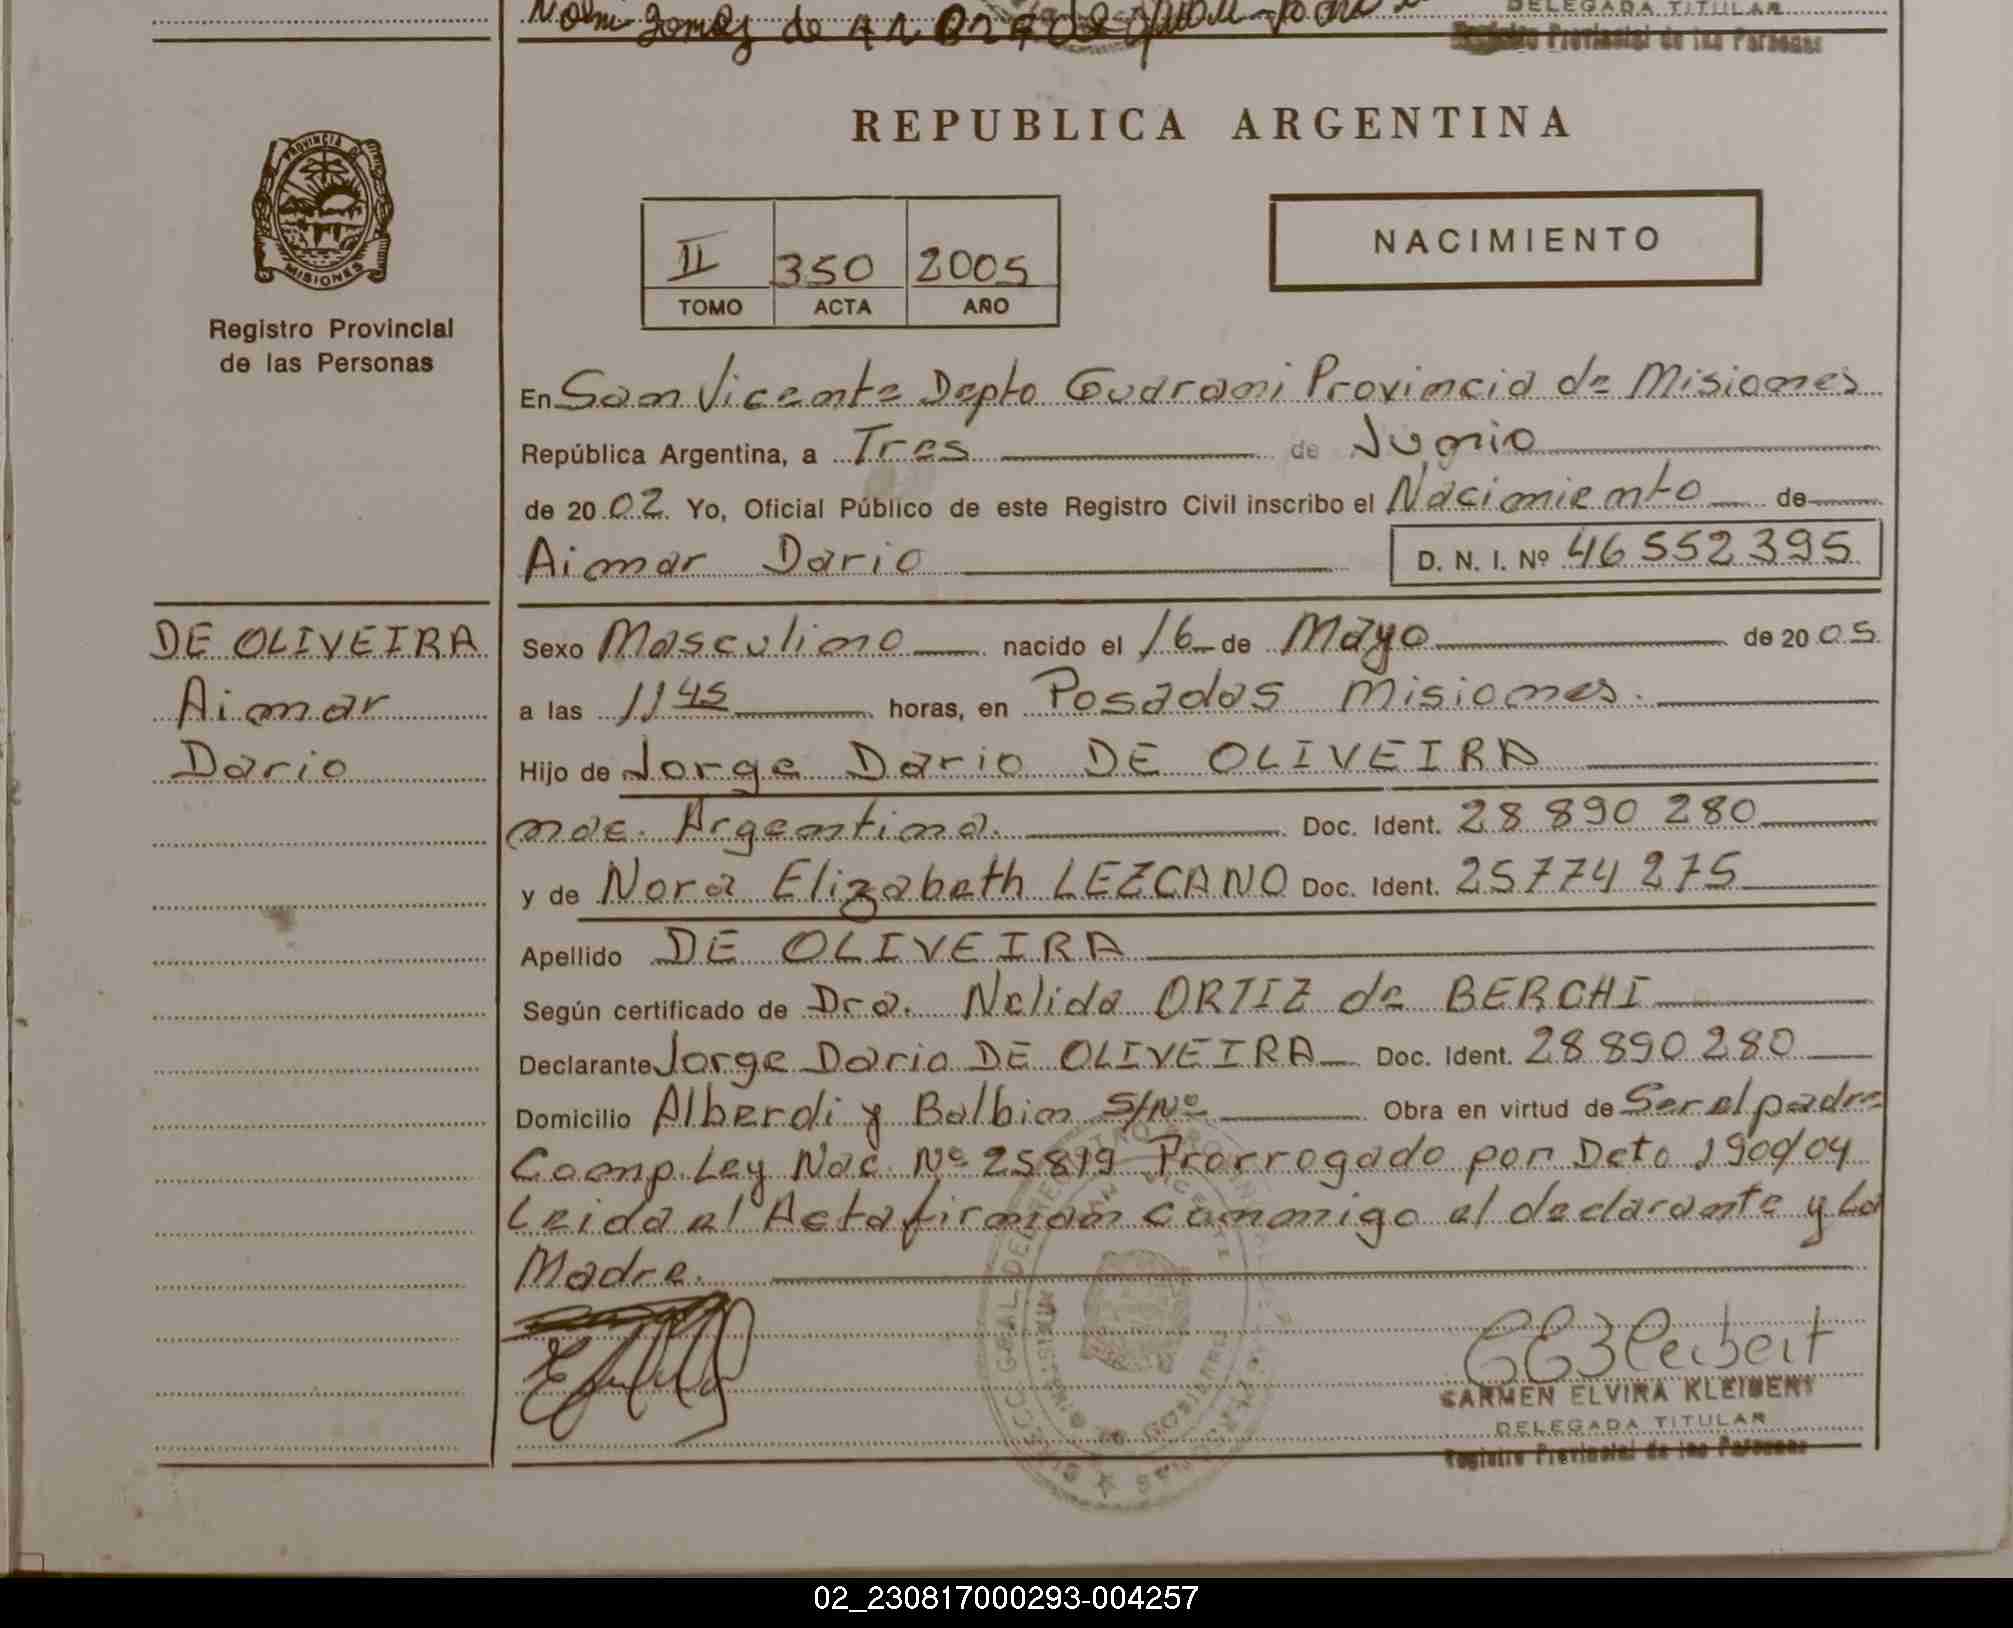 Gomez de
DELEGADA TITULAR
Registro Provincial de las Personas
PROVINCIA DE
MISIONES
Registro Provincial
de las Personas
REPUBLICA ARGENTINA
II 350 2005
TOMO ACTA AÑO
NACIMIENTO
En San Vicente Depto Guarani Provincia de Misiones
República Argentina, a Tres de Junio
de 20 02 Yo, Oficial Público de este Registro Civil inscribo el Nacimiento de
Aimar Dario D. N. I. Nº 46 552 395
DE OLIVEIRA
Aimar
Dario
Sexo Masculino nacido el 16 de Mayo de 20 05
a las 11 45 horas, en Posadas Misiones.
Hijo de Jorge Dario DE OLIVEIRA
nac. Argentina. Doc. Ident. 28 890 280
y de Nora Elizabeth LEZCANO Doc. Ident. 25774 275
Apellido DE OLIVEIRA
Según certificado de Dra. Nelida ORTIZ de BERCHI
Declarante Jorge Dario DE OLIVEIRA Doc. Ident. 28 890 280
Domicilio Alberdi y Balbin S/Nº Obra en virtud de Ser el padre
Comp. Ley Nac. Nº 25819 Prorrogado por Dcto 1900/04
Leida el Acta firman conmigo el declarante y La
Madre.
CARMEN ELVIRA KLEIBERT
DELEGADA TITULAR
Registro Provincial de las Personas
02_230817000293-004257